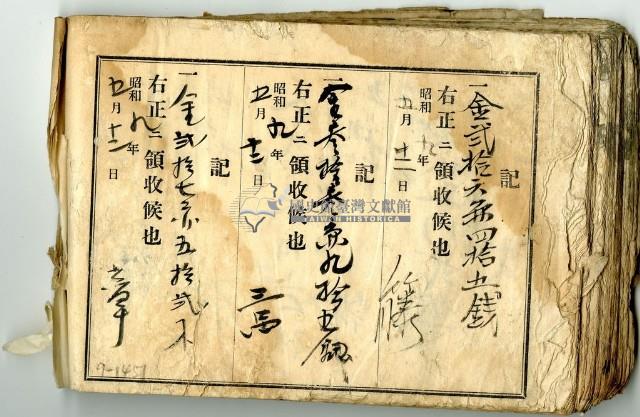 記
一金弐拾六円四拾五銭
右正ニ領收候也
昭和九年
五月十二日
記
一金参拾
九拾五銭
右正ニ領收候也
昭和九年
五月十二日
記
一金弐拾七
五拾弐
右正ニ領收候也
昭和九年
五月十二日
章
9-147
國史館臺灣文獻館
TAIWAN HISTORICA